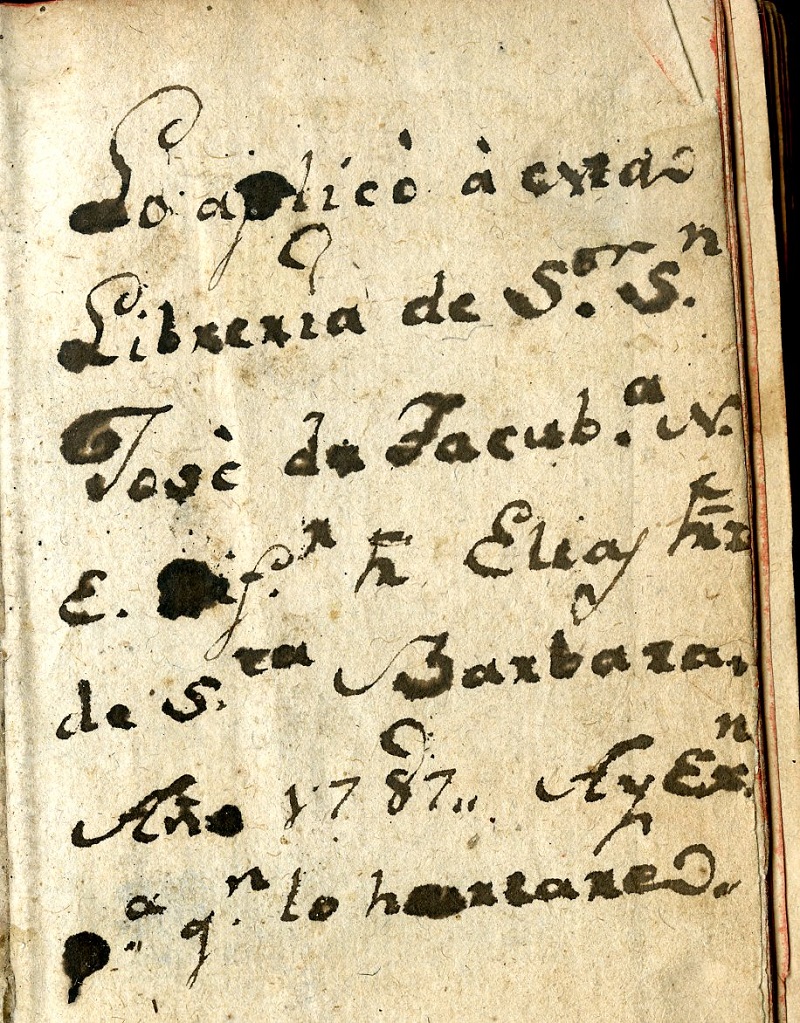 Lo aplicò à esta
Libreria de S.or S.n
Josè de Tacub.a N.
E. Dif.n fr Elias
de S.ra Barbara.
Año 1787,, Ay Ex.n
p.a q.n lo hurtare.